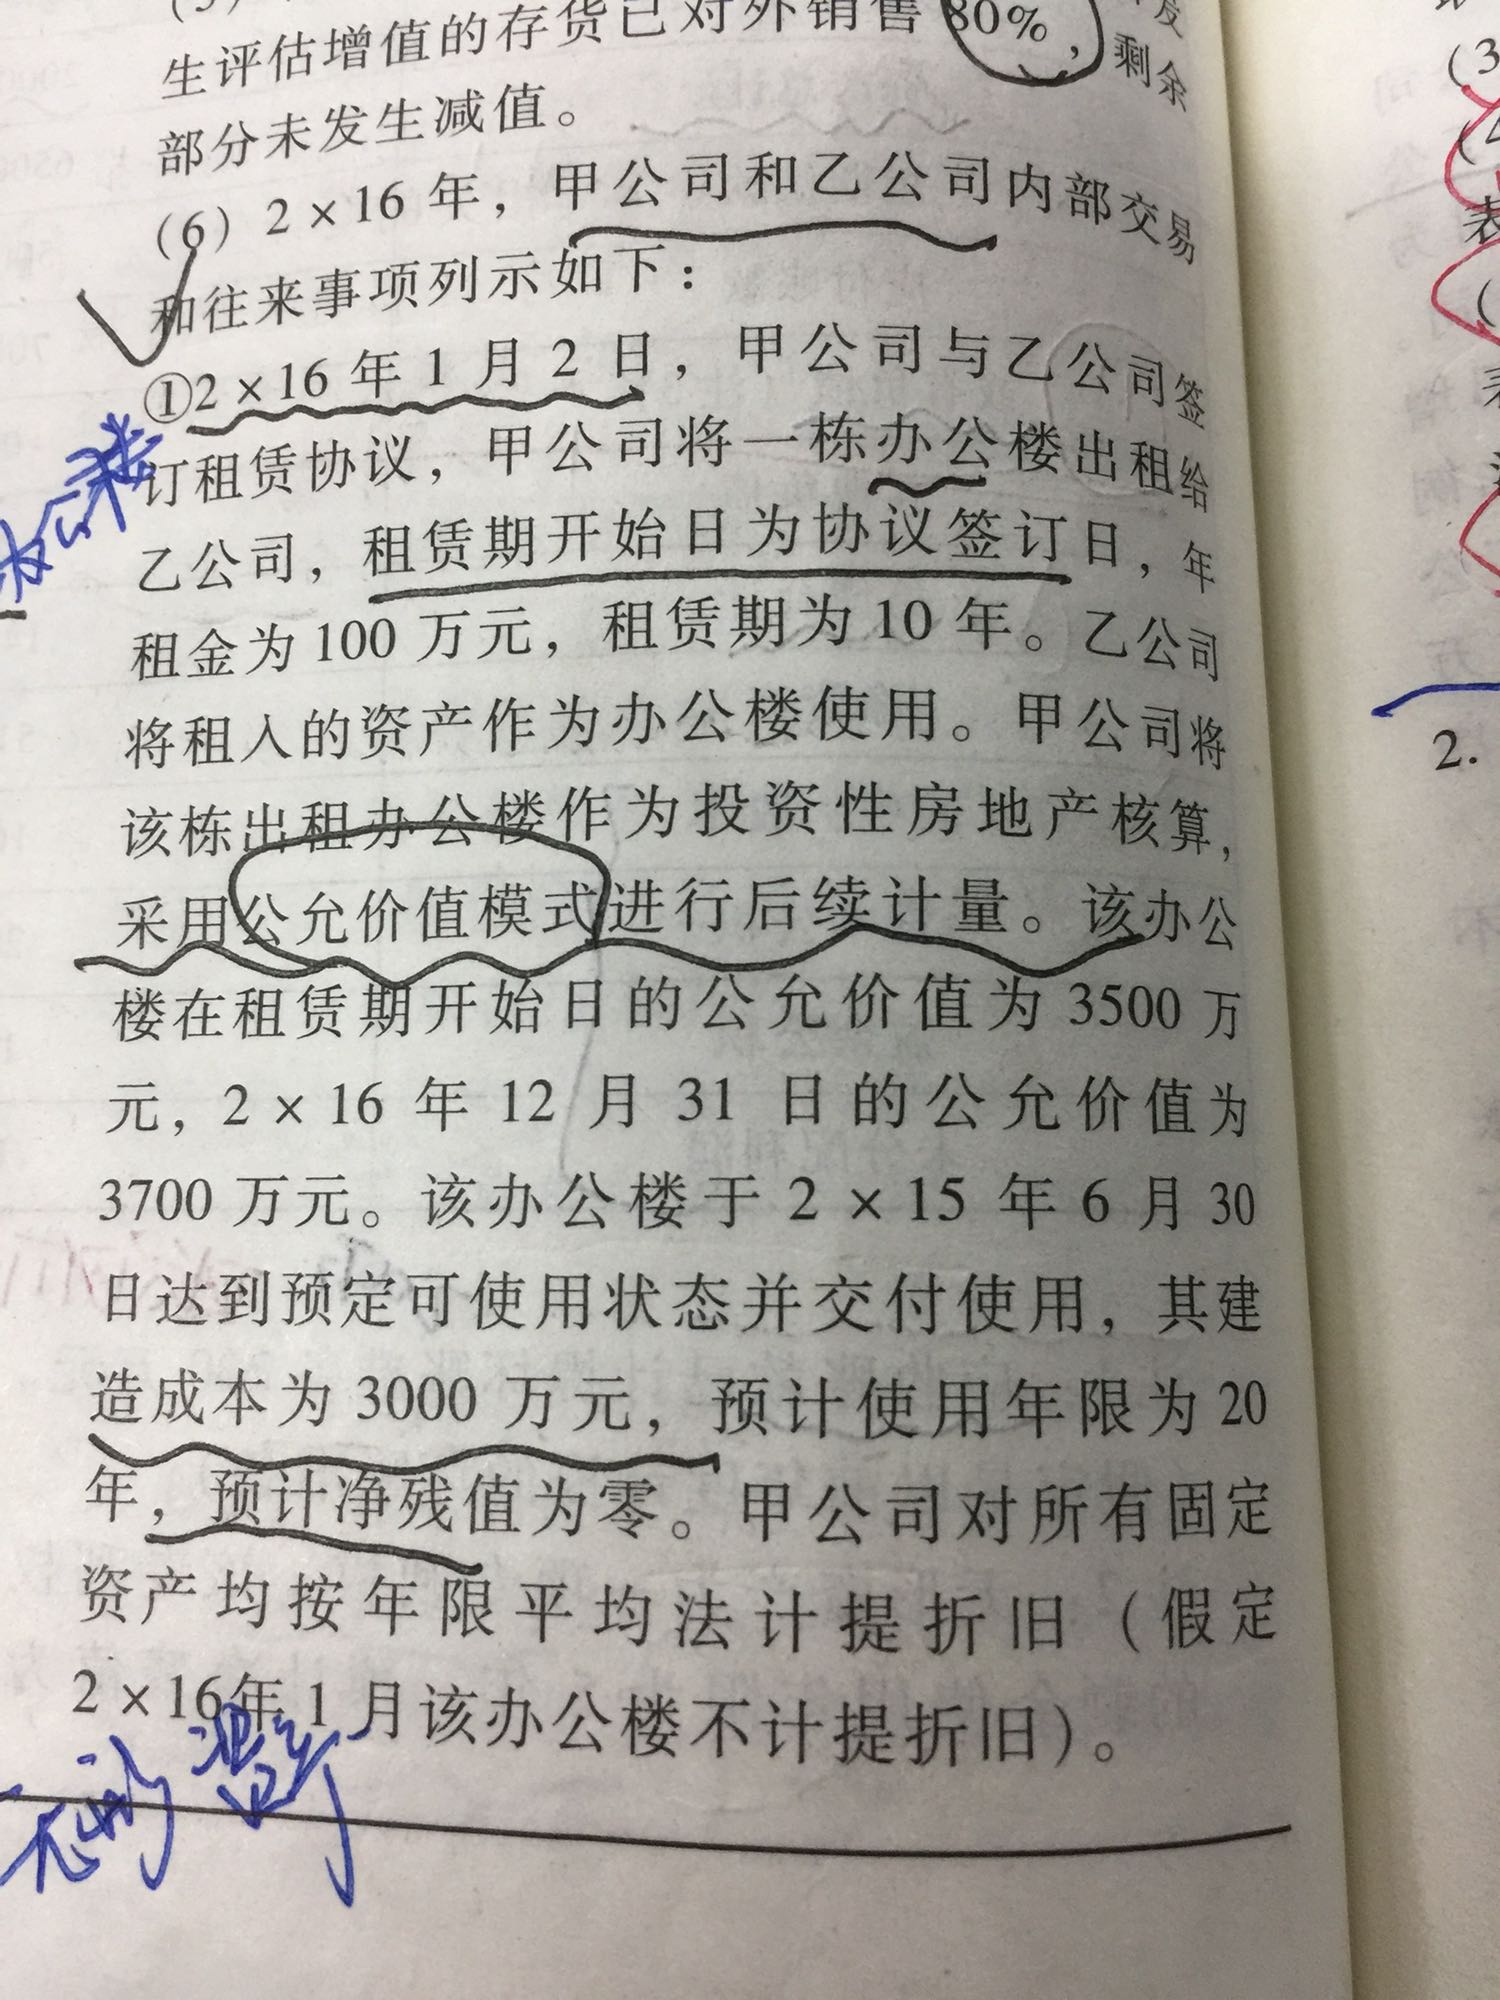 生评估增值的存货已对外销售80%，剩余
部分未发生减值。
(6) 2×16年，甲公司和乙公司内部交易
和往来事项列示如下：
①2×16年1月2日，甲公司与乙公司签
订租赁协议，甲公司将一栋办公楼出租给
乙公司，租赁期开始日为协议签订日，年
租金为100万元，租赁期为10年。乙公司
将租入的资产作为办公楼使用。甲公司将
该栋出租办公楼作为投资性房地产核算，
采用公允价值模式进行后续计量。该办公
楼在租赁期开始日的公允价值为3500万
元，2×16年12月31日的公允价值为
3700万元。该办公楼于2×15年6月30
日达到预定可使用状态并交付使用，其建
造成本为3000万元，预计使用年限为20
年，预计净残值为零。甲公司对所有固定
资产均按年限平均法计提折旧（假定
2×16年1月该办公楼不计提折旧）。
办公楼
2.